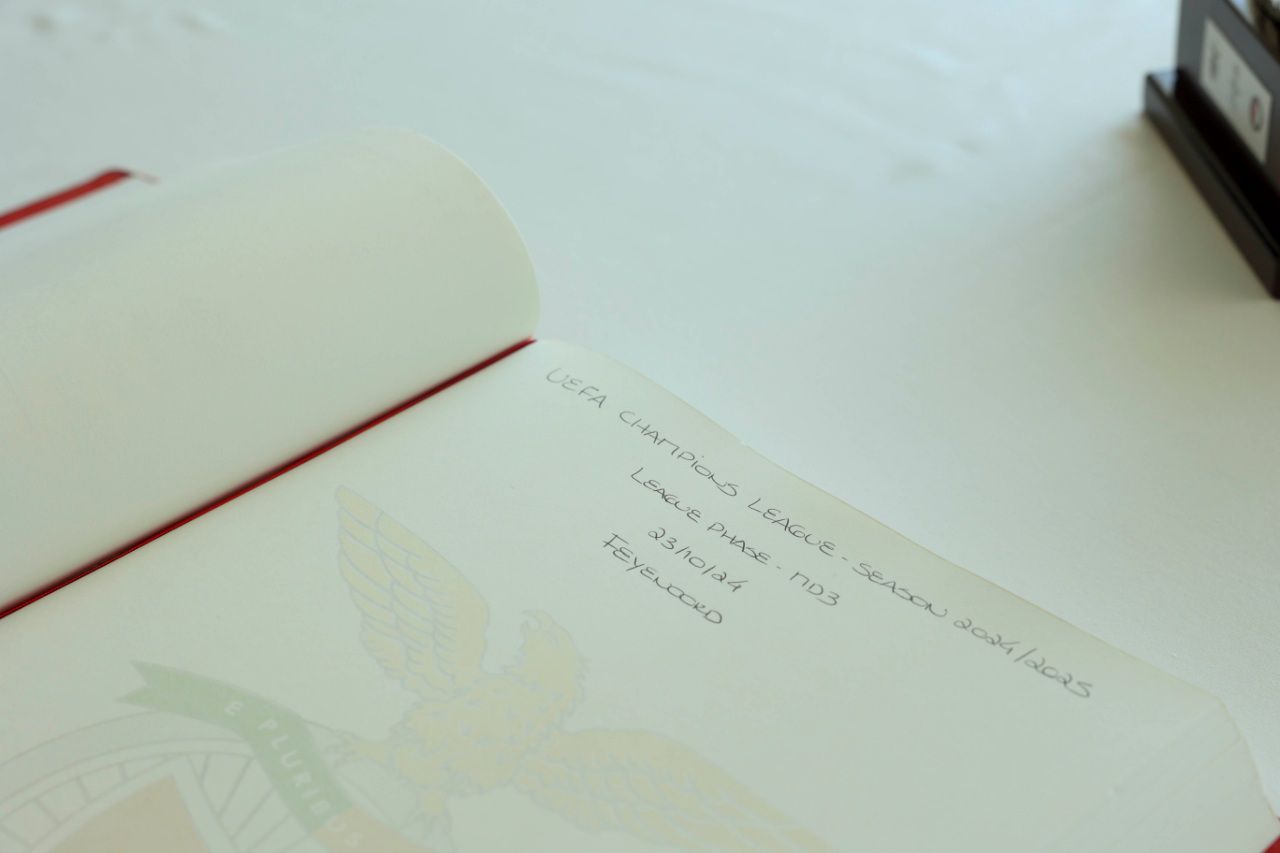 UEFA CHAMPIONS LEAGUE - SEASON 2024/2025
LEAGUE PHASE - MD3
23/10/24
FEYENOORD
E PLURIBUS